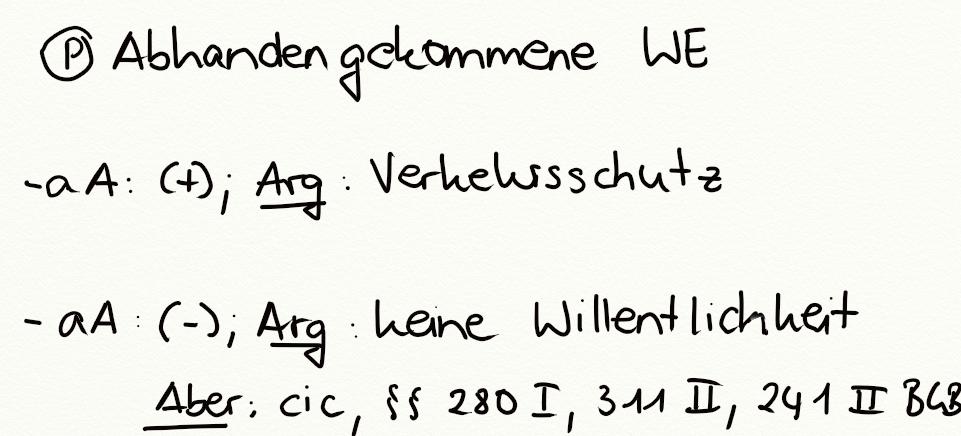 Ⓟ Abhandengekommene WE
- aA: (+); Arg: Verkehrsschutz
- aA: (-); Arg: keine Willentlichkeit
Aber: cic, §§ 280 I, 311 II, 241 II BGB